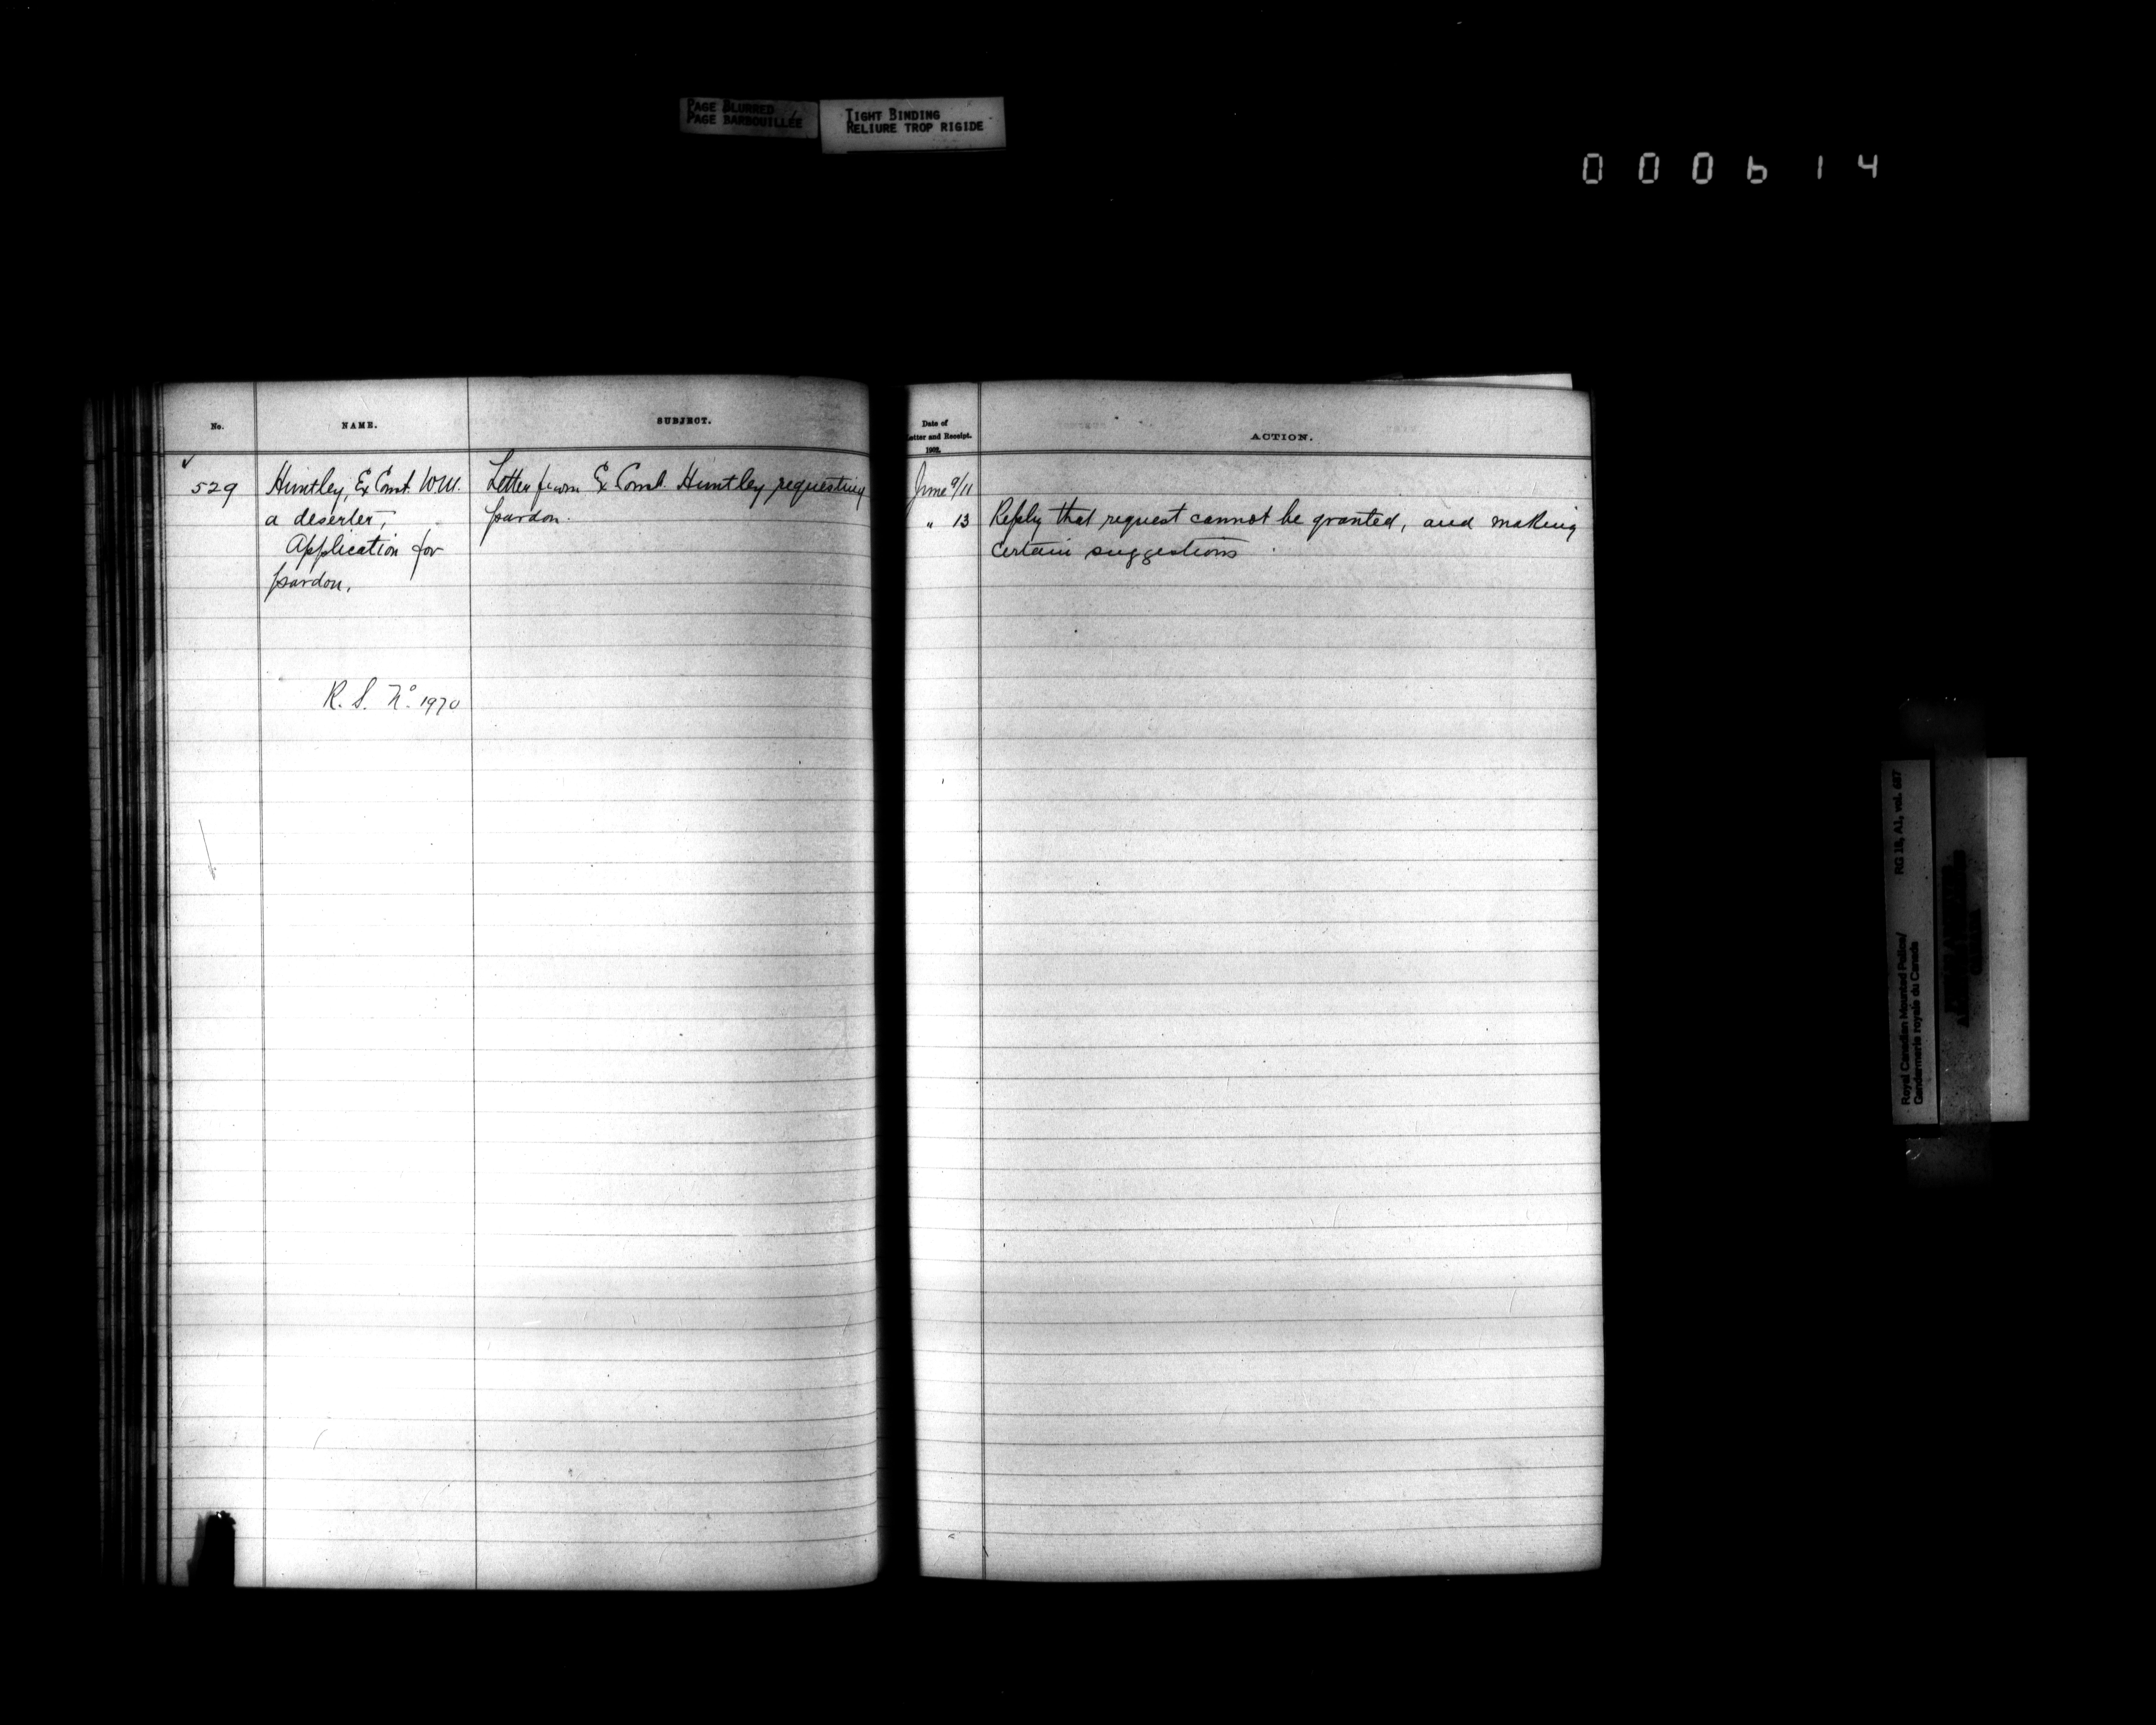 PAGE BLURRED
PAGE BARBOUILLÉE
TIGHT BINDING
RELIURE TROP RIGIDE
000614
No.
NAME.
SUBJECT.
Date of
Letter and Receipt.
1902.
ACTION.
529
Huntley, Ex Const. W.M.
a deserter,
Application for
pardon.
R. S. No. 1970
Letter from Ex Const. Huntley requesting
pardon.
June 9/11
" 13
Reply that request cannot be granted, and making
certain suggestions
Royal Canadian Mounted Police/
Gendarmerie royale du Canada
RG 18, A1, vol. 687